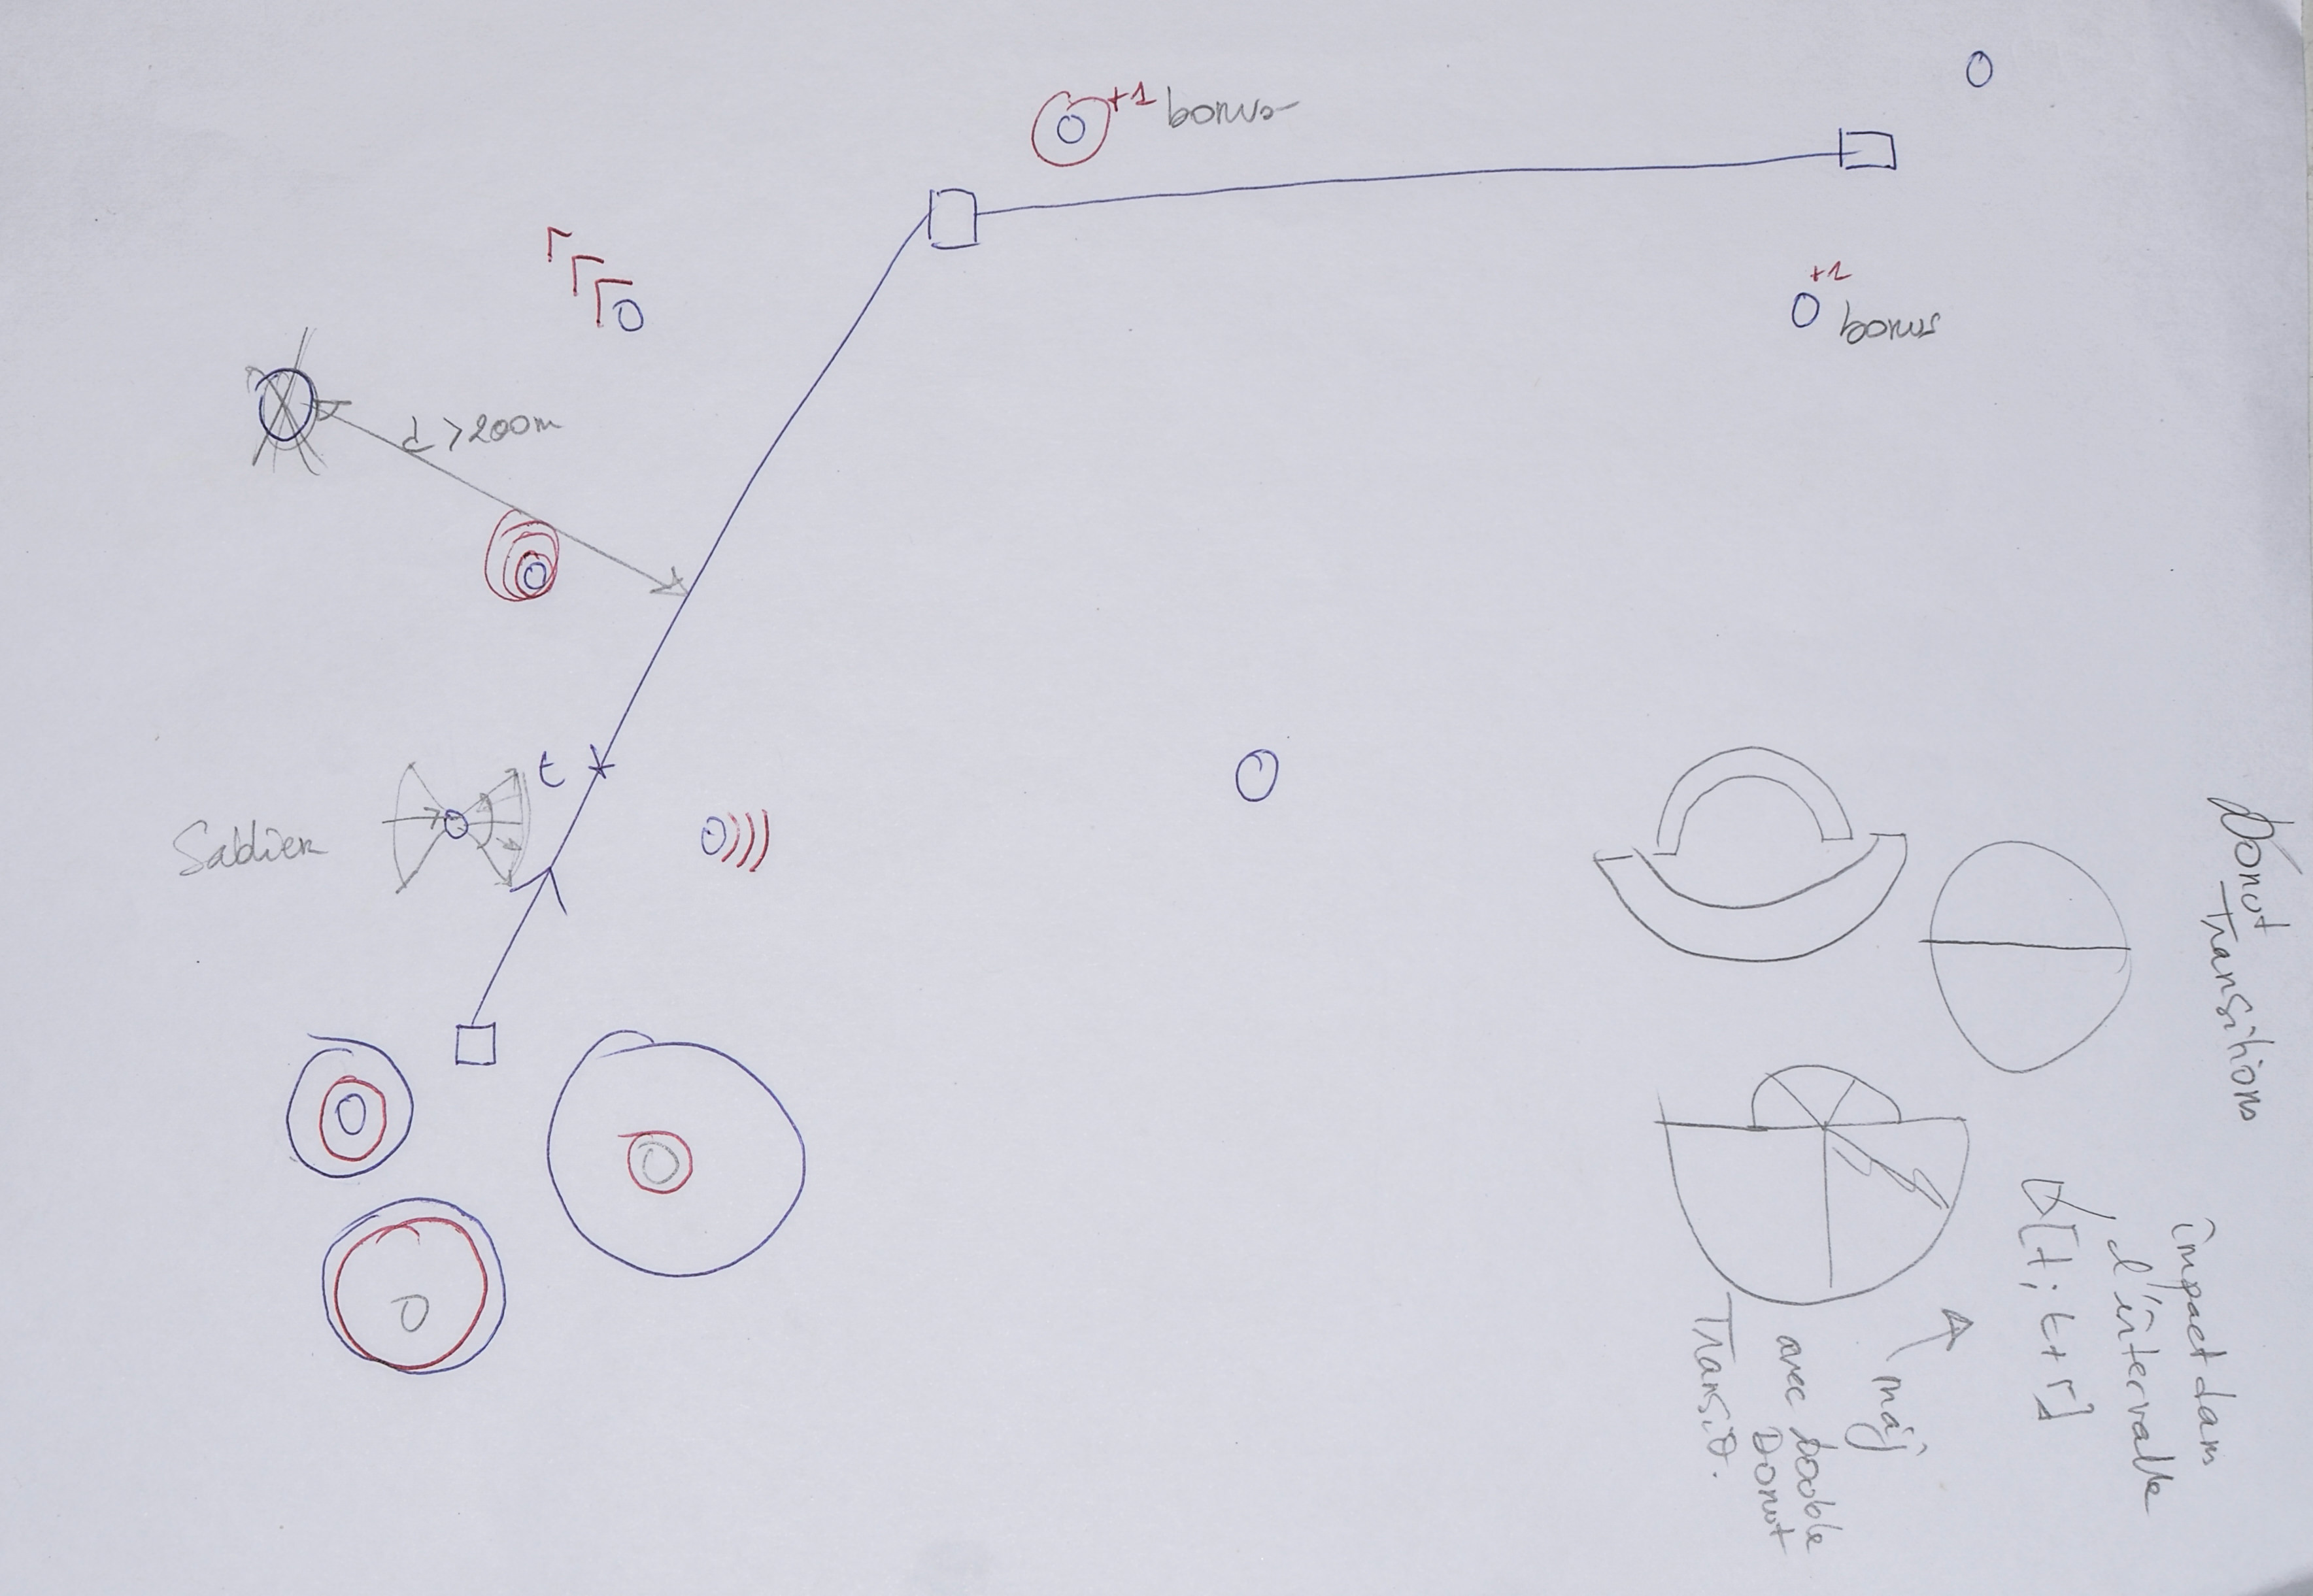 +1 bonus
+1
bonus
d > 200m
t
Sablier
Donut
Transitions
impact dans
d'intervalle
[t; t+r]
màj
avec double
Donut
Transit°.